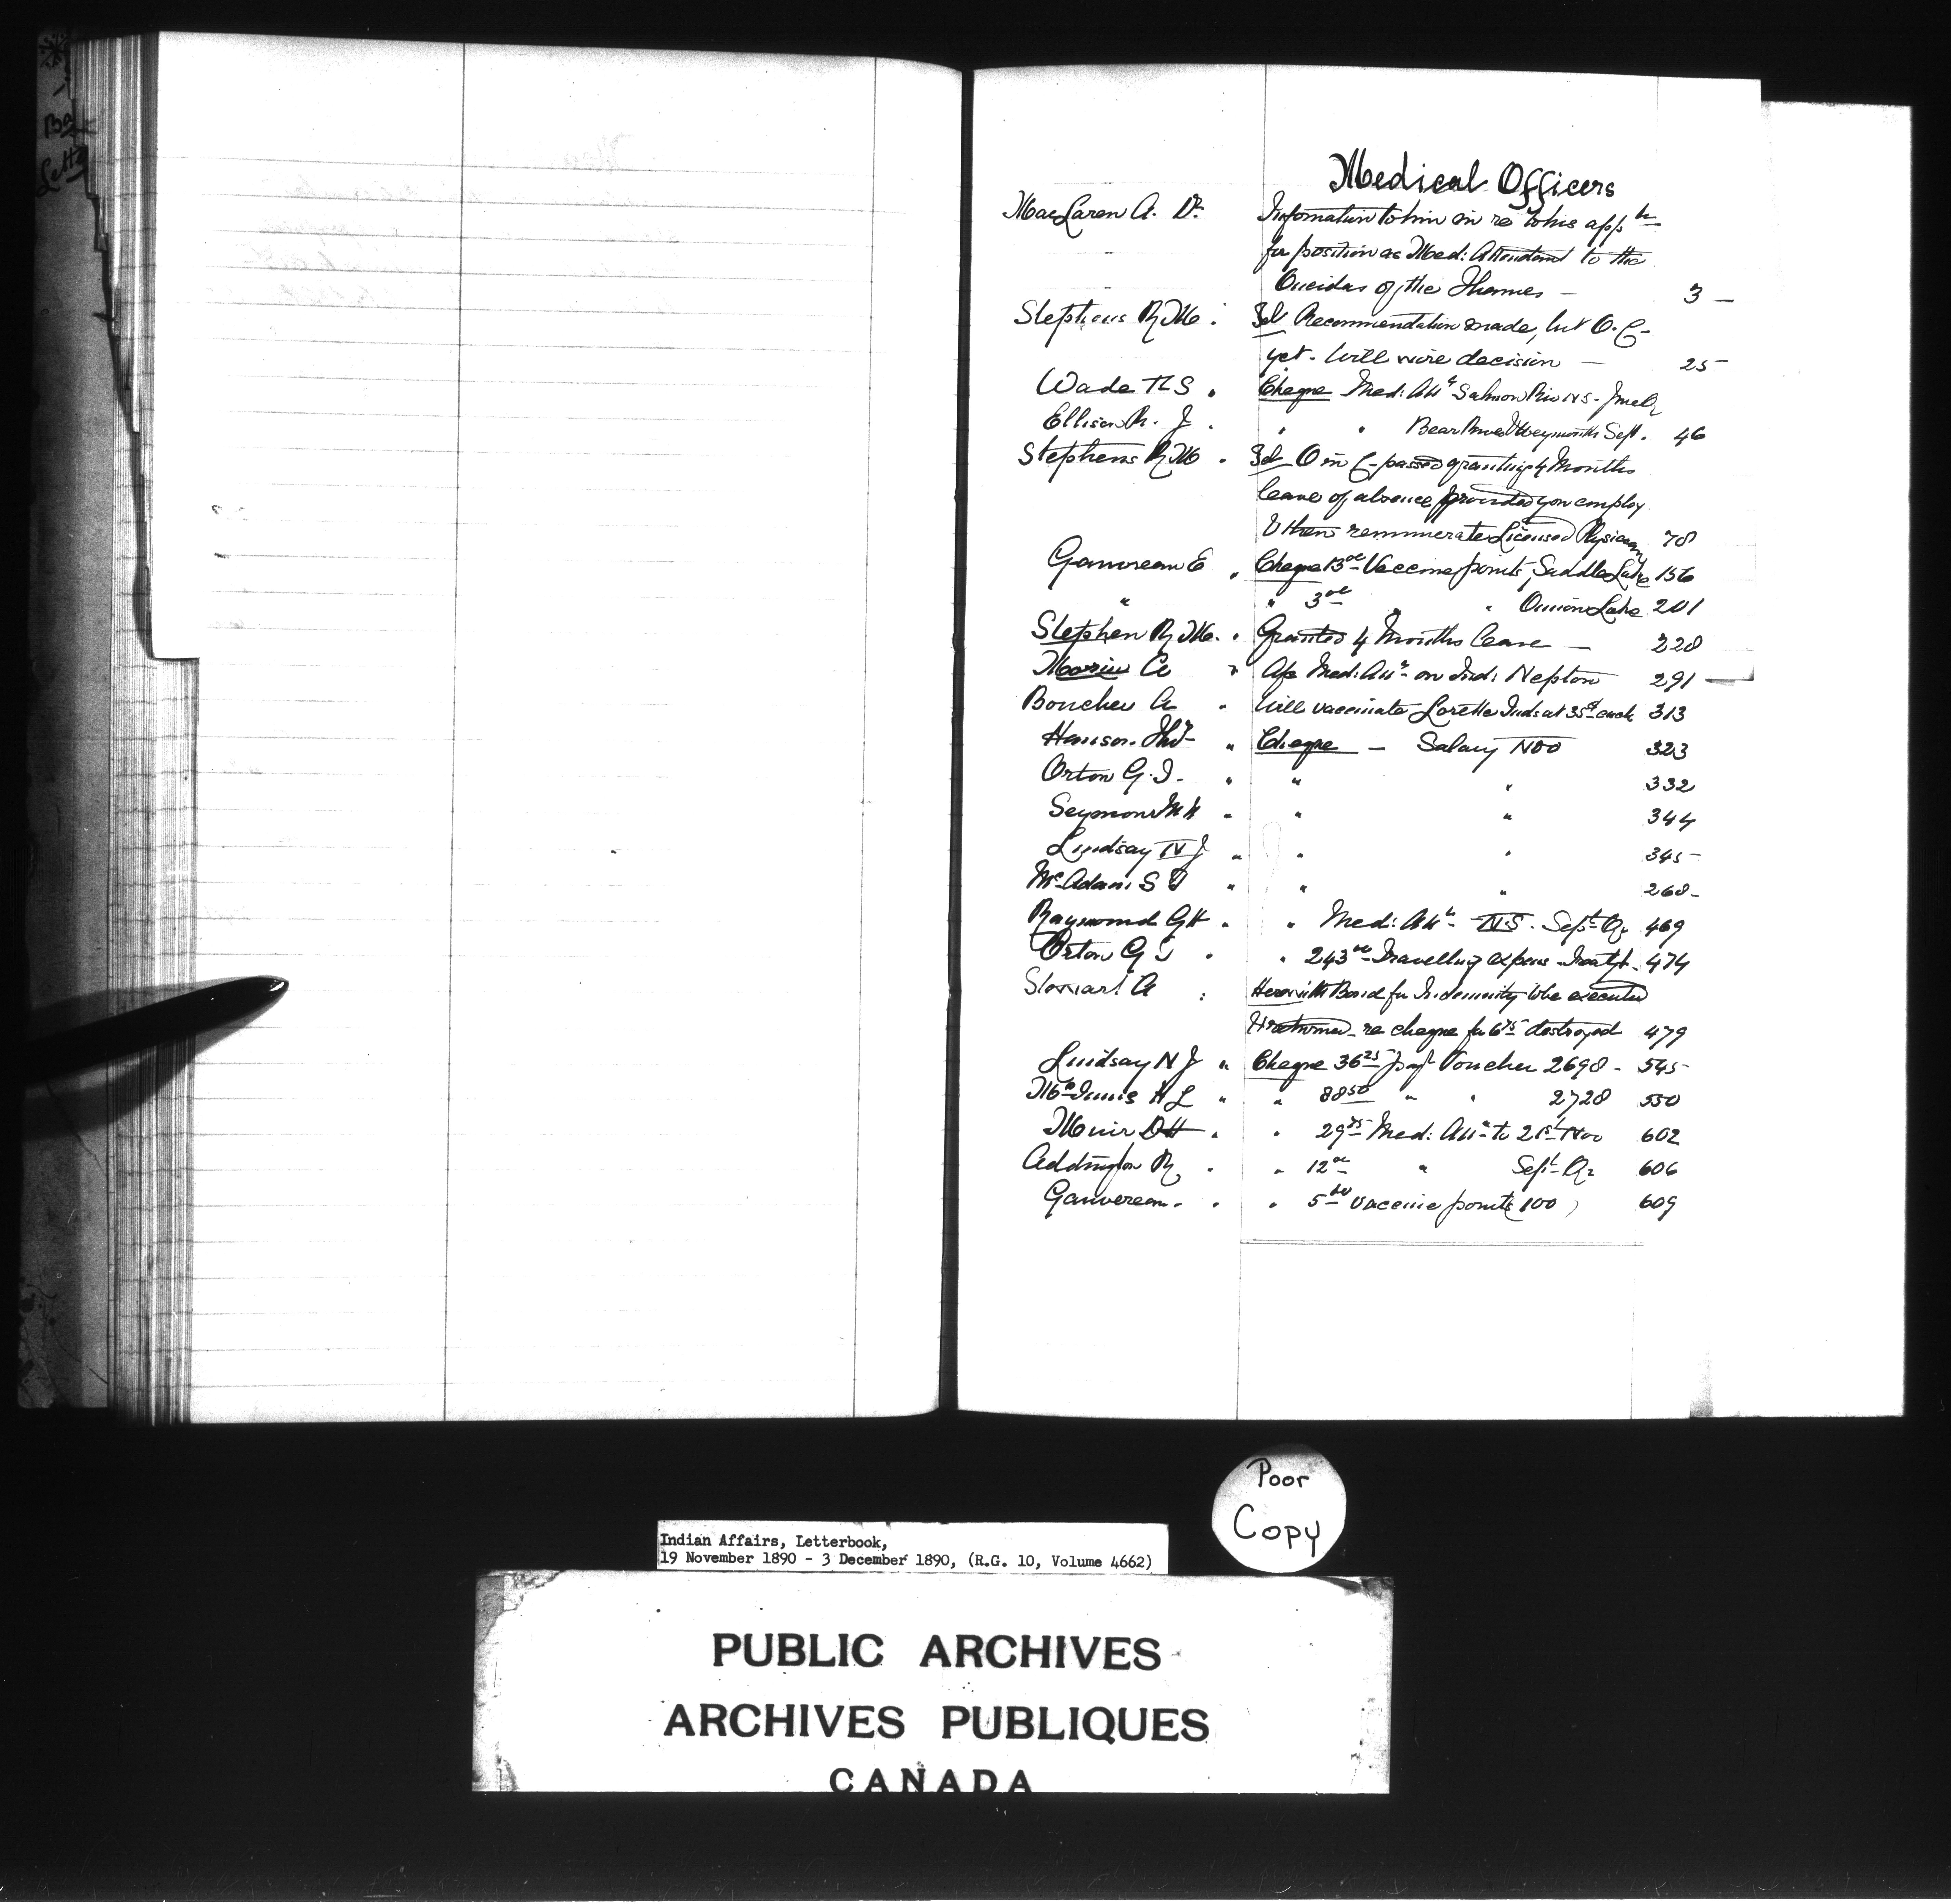 Medical Officers
MacLaren A. Dr. Information to him in re to his appn
for position as Med: Attendant to the
Oneidas of the Thames — 3 —
Stephens R M " Tel Recommendation made, but O. C
yet. Will wire decision — 25
Wade R S " Cheque Med: Att Salmon Riv N S - June Qr
Ellison R. J. " " " Bear River & Weymouth Sept. 46
Stephens R M " Tel O in C passed granting 4 Months
leave of absence provided you employ
& then remunerate Licensed Physician 78
Gauvreau E " Cheque 13 00 Vaccine points, Saddle Lake 156
" " 3 00 " " Onion Lake 201
Stephen R M. " Granted 4 Months leave — 228
Morin A " Med: Att on Ind: Nepton 291
Boucher A " Will vaccinate Lorette Inds at 35¢ each 313
Hanson Thos " Cheque — Salary Nov 323
Orton G. T. " " " 332
Seymour M M " " " 344
Lindsay N J " " " 345
McAdam S T " " " 268
Raymond G H " " Med: Att - N.S. Sept Qr 469
Orton G T " " 243 00 Travelling expens Treaty 474
A " Herewith Bond for Indemnity to be executed
& returned re cheque for 6 75 destroyed 479
Lindsay N J " Cheque 36 25 payt Voucher 2698 - 545
McInnis H L " " 88 50 " " 2728 550
Muir D H " " 29 75 Med: Att to 21st Nov 602
Addington R " " 12 00 " Sept Qr 606
Gauvreau " " 5 vaccine points (100) 609
Poor
Copy
Indian Affairs, Letterbook,
19 November 1890 - 3 December 1890, (R.G. 10, Volume 4662)
PUBLIC ARCHIVES
ARCHIVES PUBLIQUES
CANADA